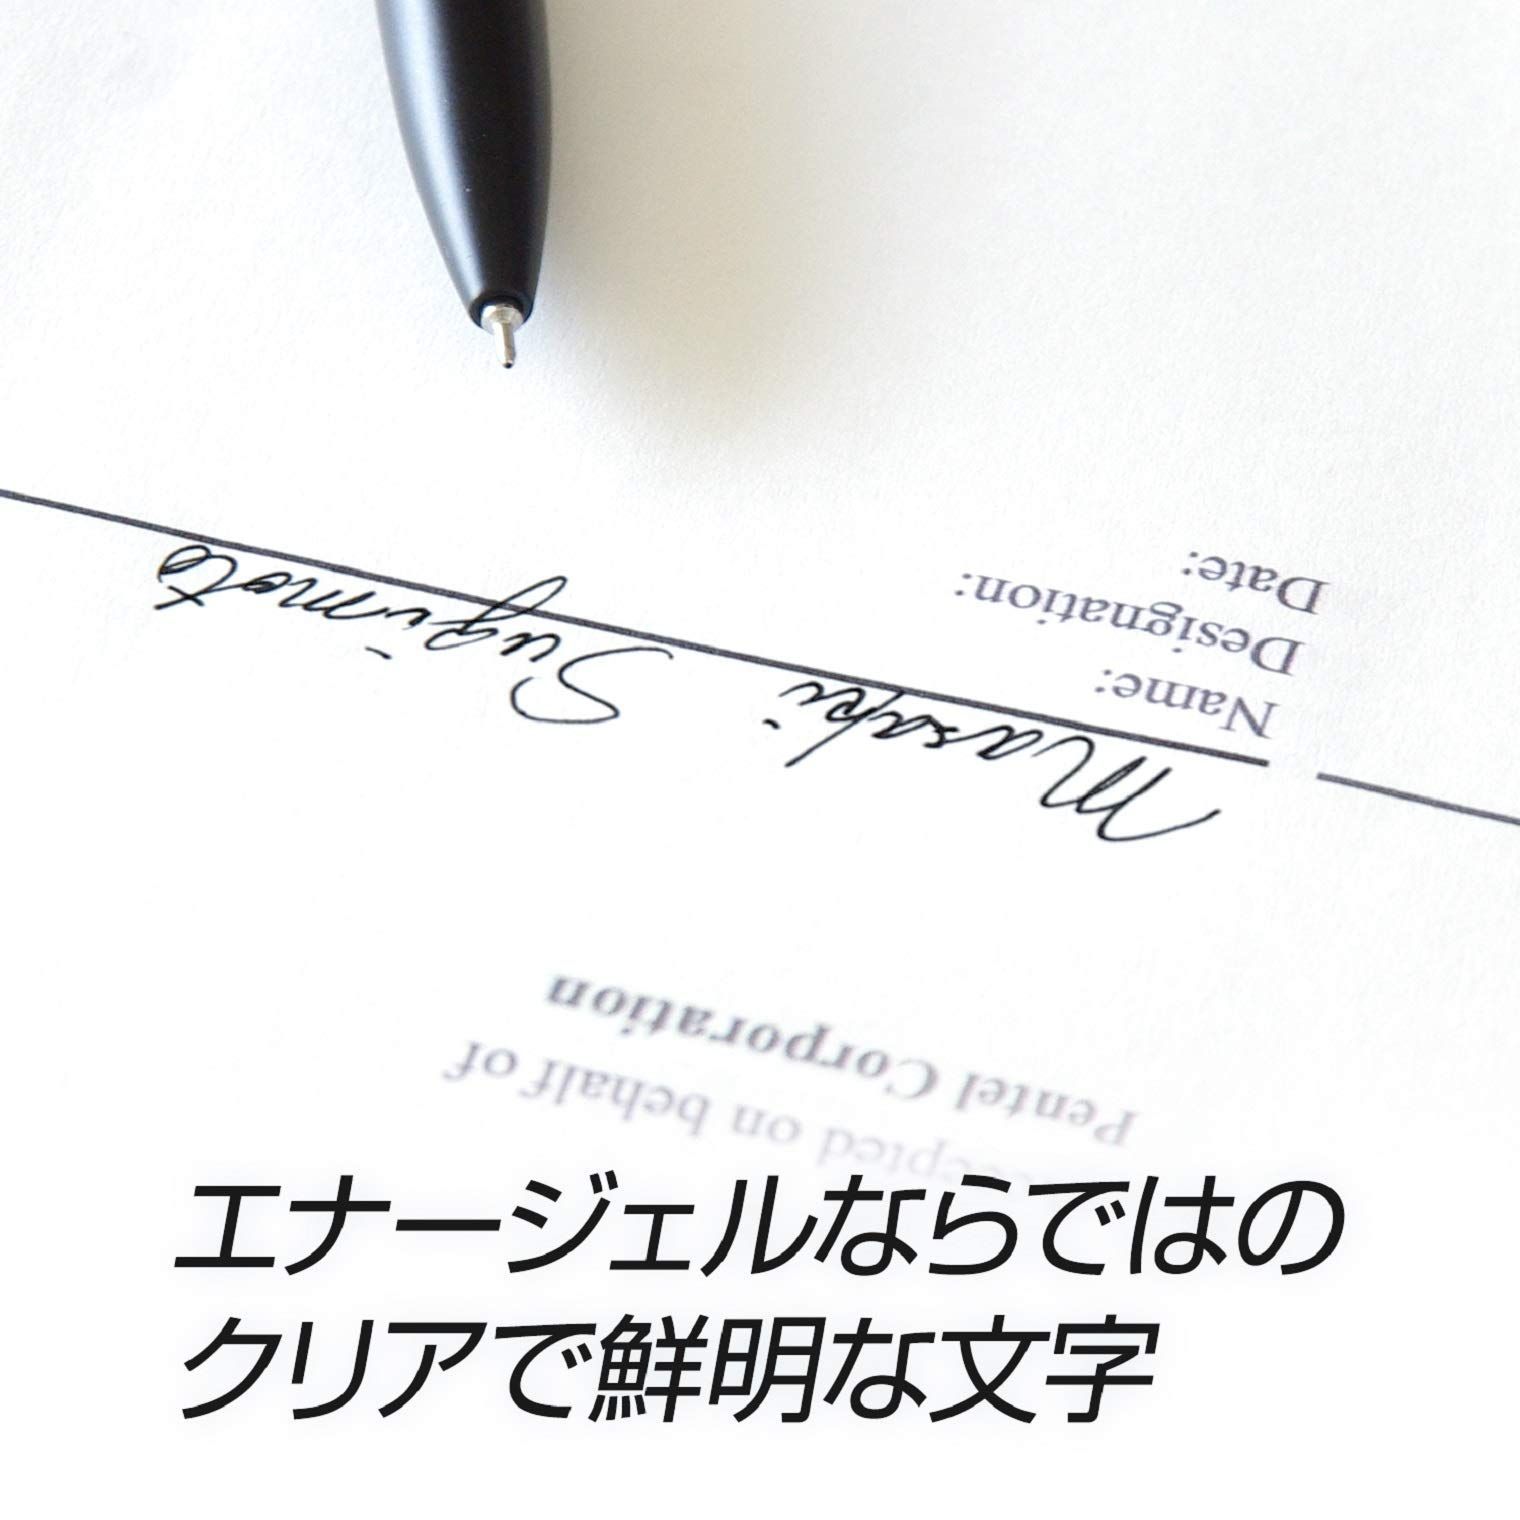 Accepted on behalf of
Pentel Corporation
Masaki Sugimoto
Name:
Designation:
Date:
エナージェルならではの
クリアで鮮明な文字